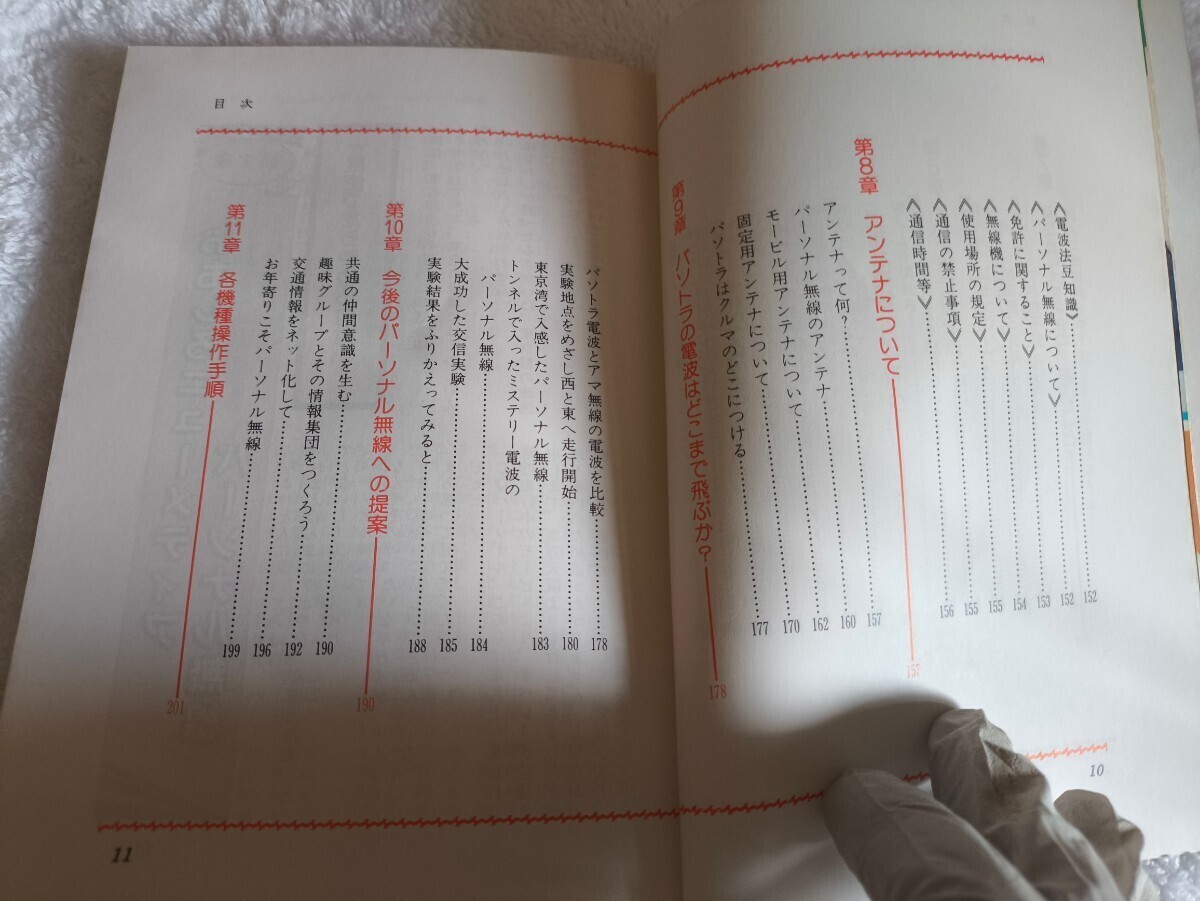 《電波法豆知識》……152
《パーソナル無線について》……152
《免許に関すること》……153
《無線機について》……154
《使用場所の規定》……155
《通信の禁止事項》……155
《通信時間等》……156
第8章 アンテナについて 157
アンテナって何?……157
パーソナル無線のアンテナ……160
モービル用アンテナについて……162
固定用アンテナについて……170
パソトラはクルマのどこにつける……177
第9章 パソトラの電波はどこまで飛ぶか? 178
10
目次
パソトラ電波とアマ無線の電波を比較……178
実験地点をめざし西と東へ走行開始……180
東京湾で入感したパーソナル無線……183
トンネルで入ったミステリー電波の
パーソナル無線……184
大成功した交信実験……185
実験結果をふりかえってみると……188
第10章 今後のパーソナル無線への提案 190
共通の仲間意識を生む……190
趣味グループとその情報集団をつくろう……192
交通情報をネット化して……196
お年寄りこそパーソナル無線……199
第11章 各機種操作手順 201
11